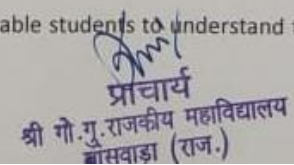 able students to understand
प्राचार्य
श्री गो.गु.राजकीय महाविद्यालय
बांसवाड़ा (राज.)